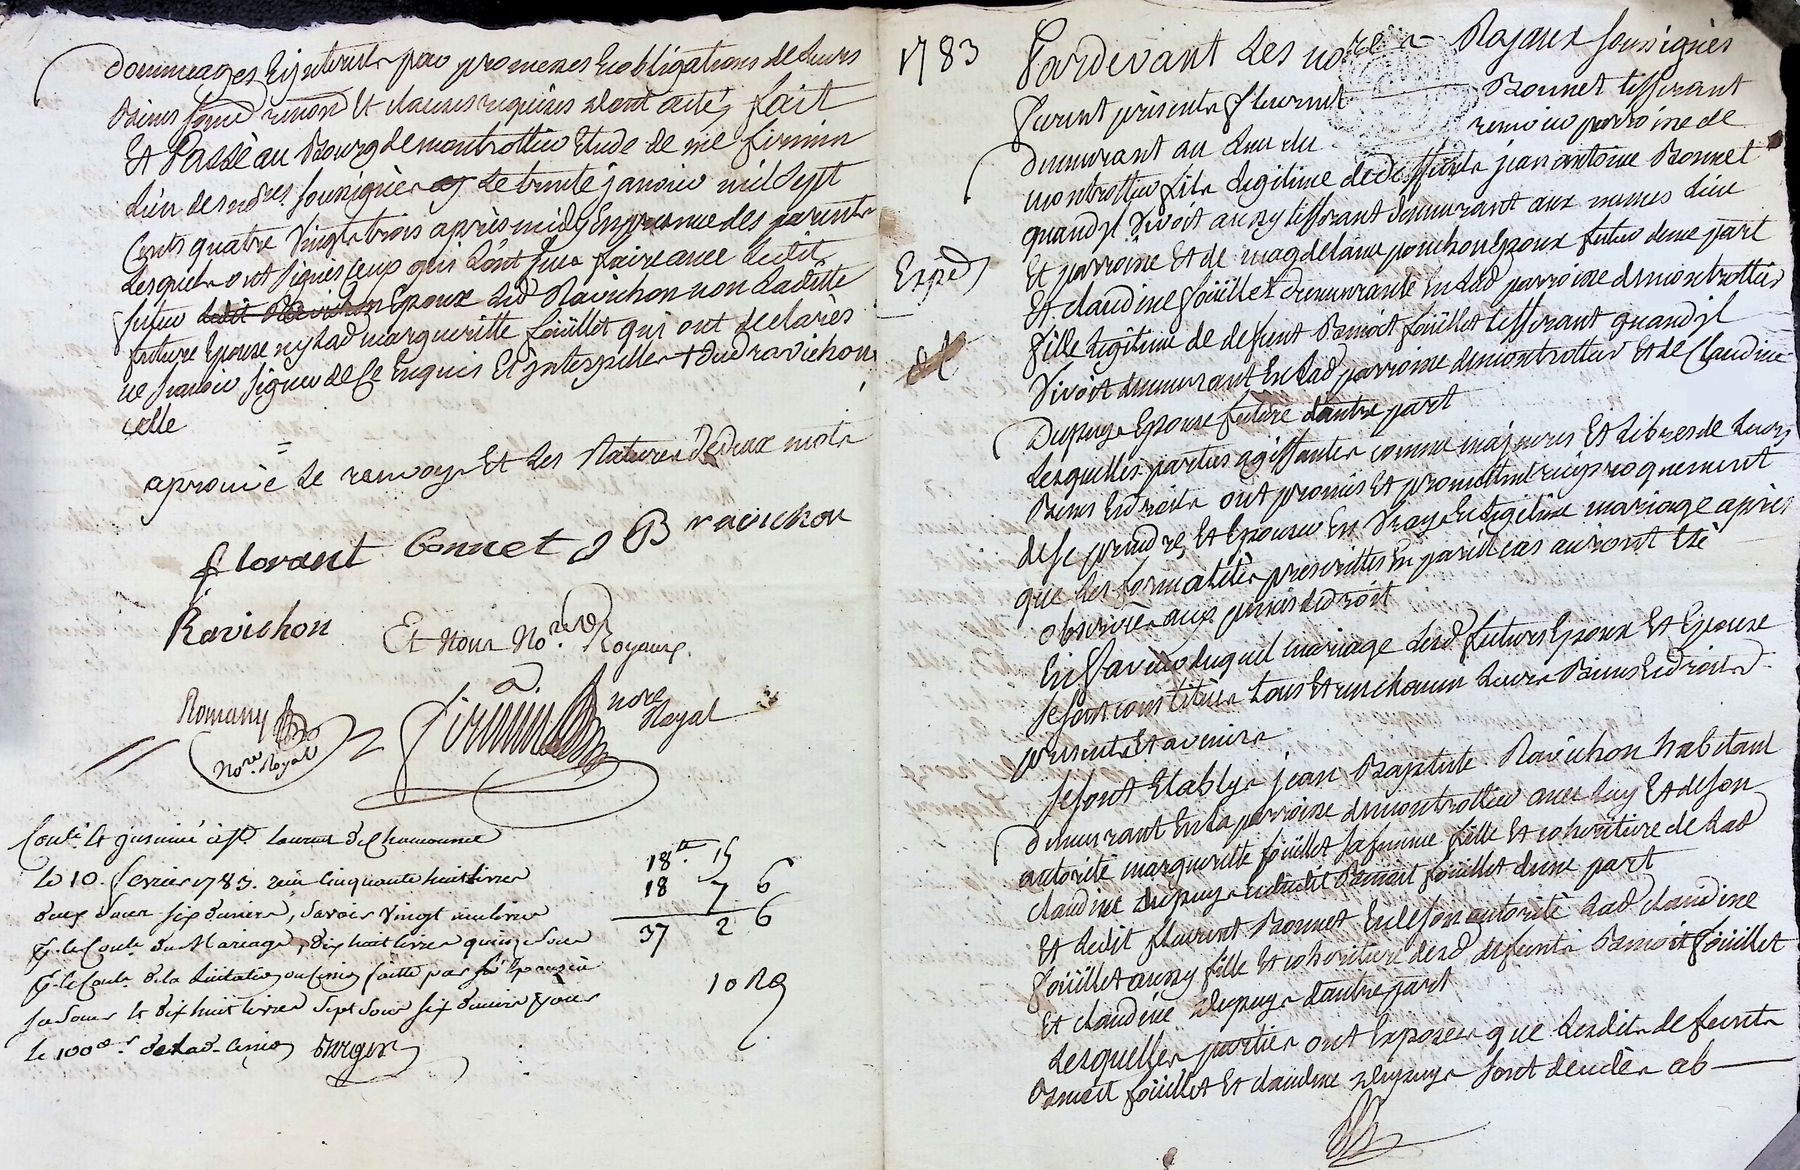 dommeages Et jnterests par promesses Et obligations de leurs
Biens soumd renond Et clauses requises dont acte, fait
Et Passé au Bourg de montrottier Etude de me firmin
L'un des nores soussignés le trente janvier mil sept
Cents quatre Vingt trois après midy En presence des parents
Lesquels ont signés Ceux qui L'ont sus faire avec ledit
futur Epoux led Ravichon non Laditte
future Epouse ny lad margueritte foüillet qui ont declarés
ne sçavoir signer de Ce Enquis Et jnterpellés + dud ravichon
celle
aprouvé Le renvoye Et Les Ratures De deux mots
florant bonnet J B ravichon
Ravichon Et Nous No.res Royaux.
Romany nore Royal Firmin nore Royal
Contlé Et jnsinué à St Laurent de Chamousset
le 10. fevrier 1783. reçu Cinquante huit livres
deux sous six deniers, savoir Vingt une livres
pr. le Contle du Mariage, dix huit livres quinze sous
pr. le Contle de la Licitation ou Cession faitte par
sa soeur Et dix huit livres sept sous six deniers pour
le 100e de lad. Cession
18 15
18 7 6
37 2 6
10
1783 Pardevant Les nores Royaux soussignés
furent présents fleurent Bonnet tisserant
demeurant au Lieu du parroisse de
montrottier fils Legitime de deffunt jean antoine Bonnet
quand jl Vivoit aussy tisserant demeurant aux memes Lieu
Et parroisse Et de magdelaine ponchon Epoux futur d'une part
Exped
Et claudine foüillet demeurante En Lad parroisse de montrottier
fille Legitime de defunt Benoit foüillet tisserant quand jl
Vivoit demeurant En Lad parroisse de montrottier Et de Claudine
Dupuys Epouse future d'autre part
Lesquelles parties agissantes comme majeures Et Libres de Leurs
Biens Et droits ont promis Et promettent reciproquement
de se prendre, Et Epouser En Vray Et Legitime mariage après
que Les formalités prescrittes En pareil cas auront Eté
observées aux peines de droit
En faveur duquel mariage Lesd. futurs Epoux Et Epouse
se sont constitués tous Et un chacun Leurs Biens Et droits
presents Et avenirs
se sont Etablys jean Baptiste Ravichon habitant
demeurant En La parroisse de montrottier avec luy Et de son
autorité margueritte foüillet sa femme fille Et coheritiere de Lad
claudine Dupuys dudit Benoit foüillet d'une part
Et Ledit fleurent Bonnet Et de son autorité Lad claudine
foüillet aussy fille Et coheritiere desd defunts Benoit foüillet
Et claudine Dupuys d'autre part
Lesquelles parties ont Exposées que Lesdits defunts
Benoit foüillet Et claudine Dupuys sont decedés ab